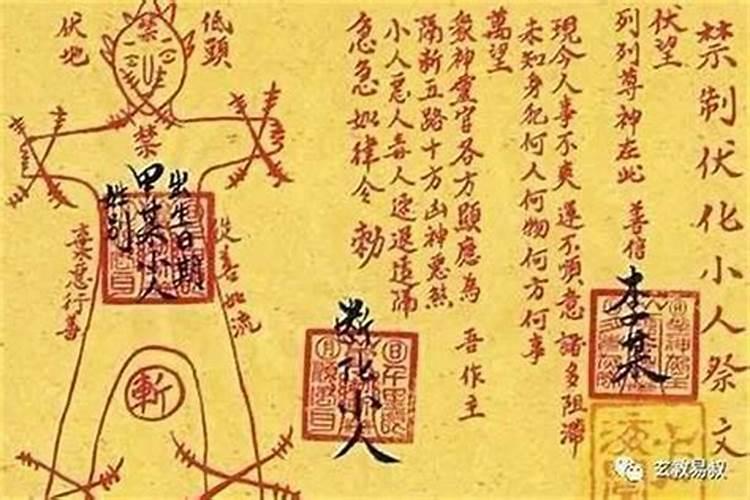 禁制伏化小人祭文
伏望
列列尊神在此 善信
李某
現今人事不爽 運不順意 諸多阻滯
未知身犯何人何物何方何事
萬望
衆神靈官各方顯應為 吾作主
隔斷五路十方凶神惡煞
小人惡人毒人速退遠隔
急急如律令 勅
斷化小人
低頭
伏地
禁
禁
出生日期
甲某小人
姓別
從善如流
棄惡行善
斬
玄教易叔